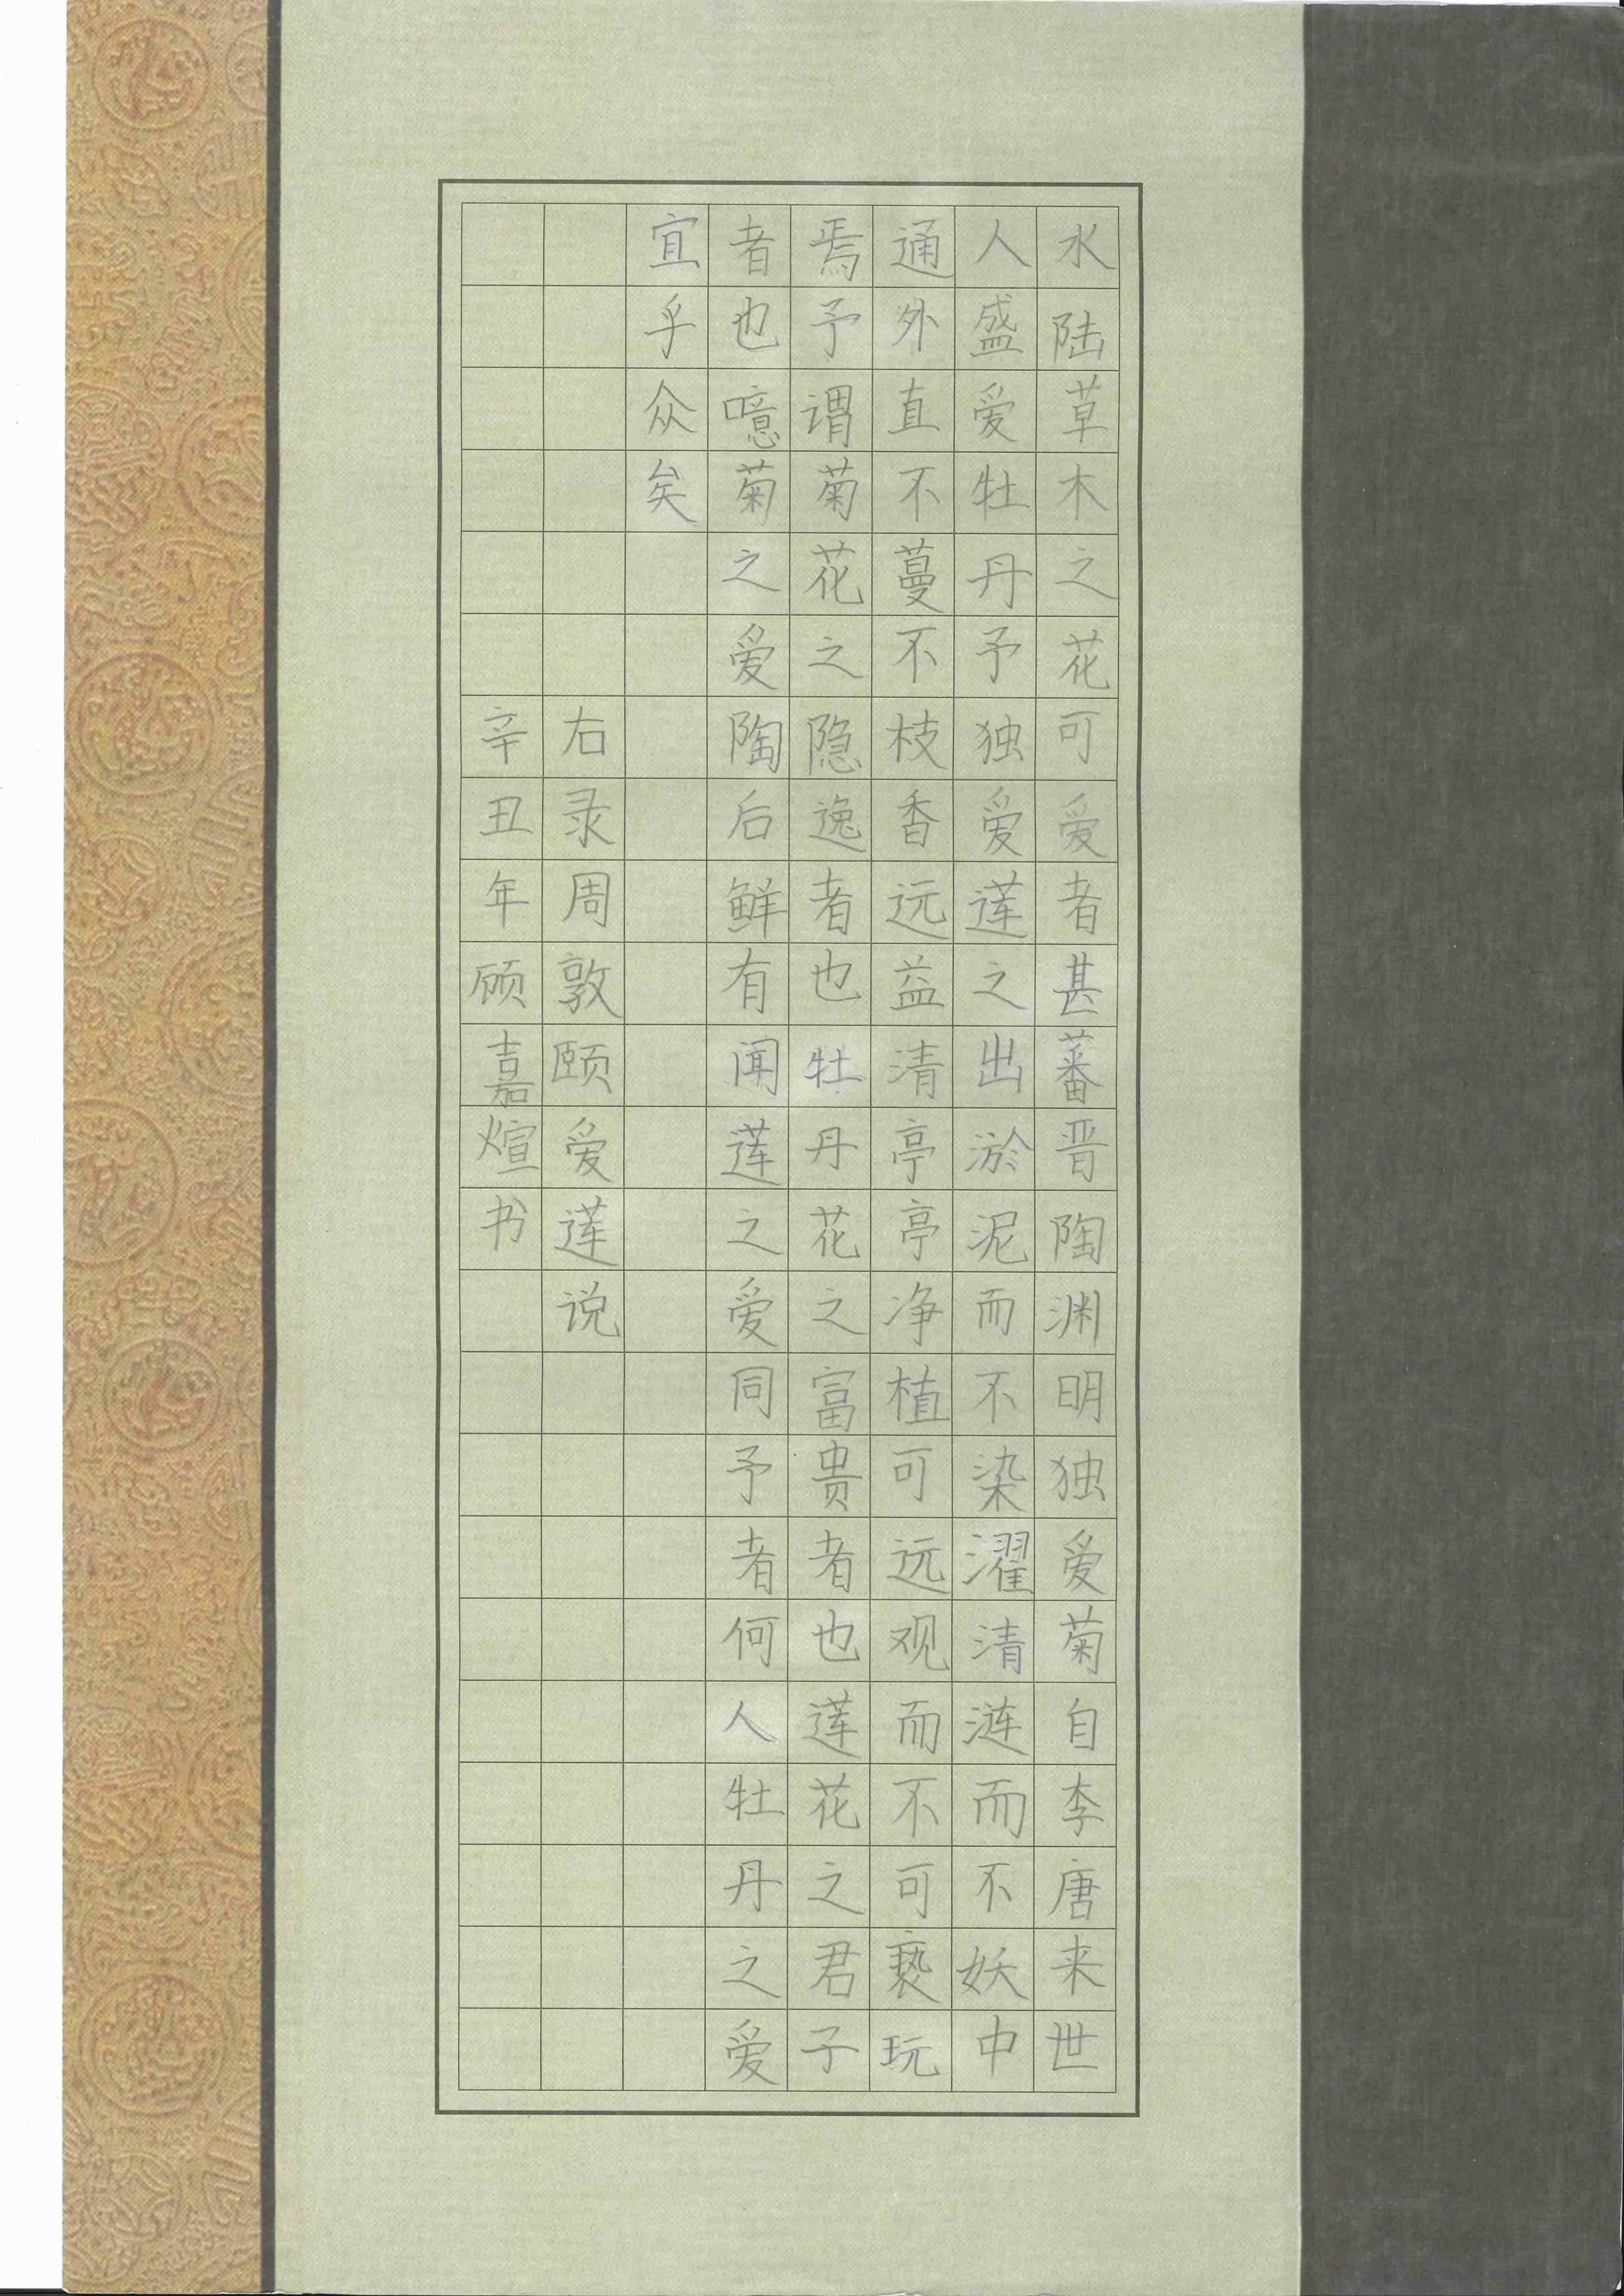 水陆草木之花可爱者甚蕃晋陶渊明独爱菊自李唐来世
人盛爱牡丹予独爱莲之出淤泥而不染濯清涟而不妖中
通外直不蔓不枝香远益清亭亭净植可远观而不可亵玩
焉予谓菊花之隐逸者也牡丹花之富贵者也莲花之君子
者也噫菊之爱陶后鲜有闻莲之爱同予者何人牡丹之爱
宜乎众矣
右录周敦颐爱莲说
辛丑年顾嘉煊书